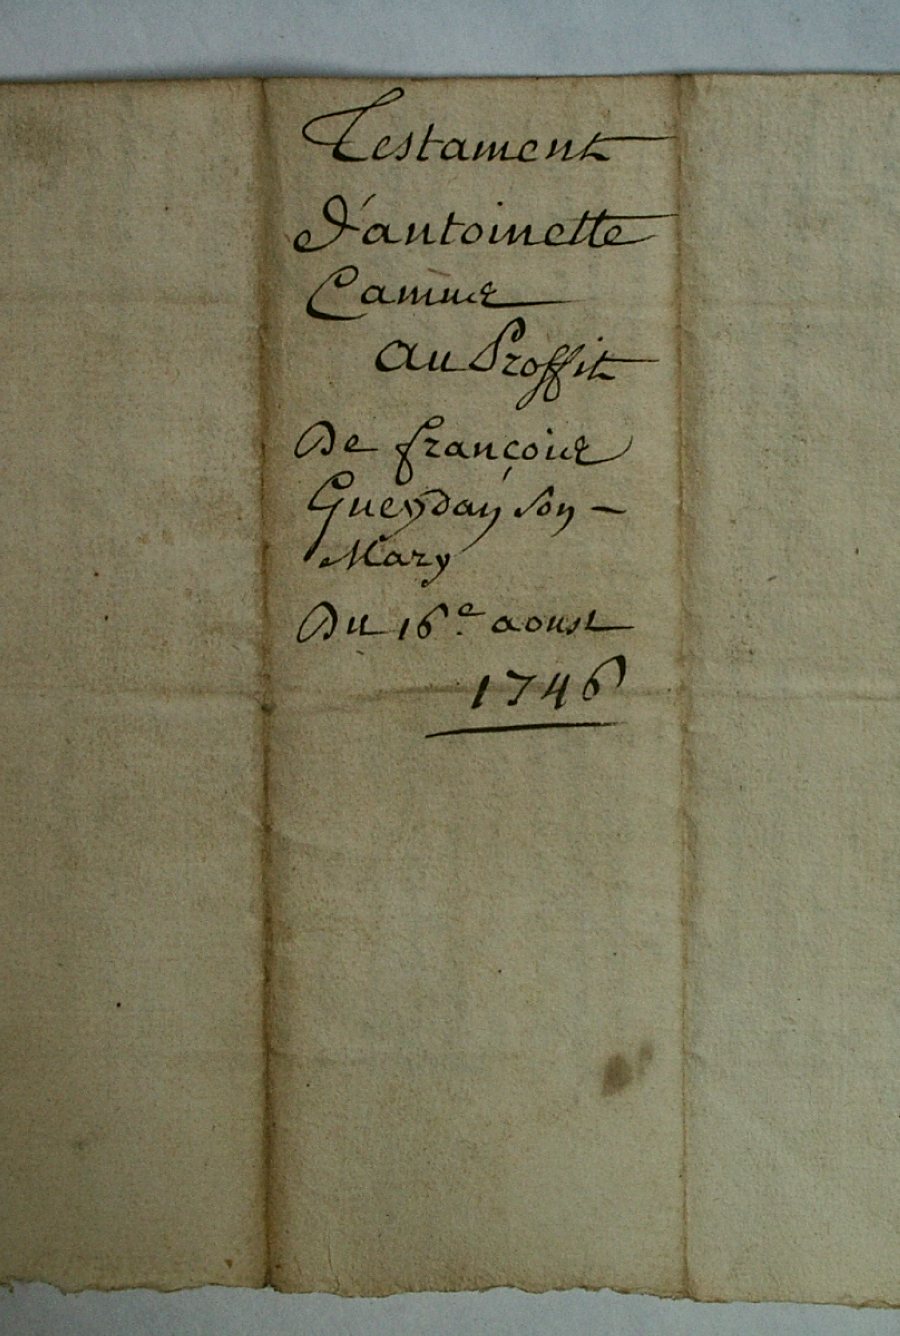 Testament
d'antoinette
Camus
au Proffit
De françois
Gueydan son -
Mary
Du 16.e aoust
1746